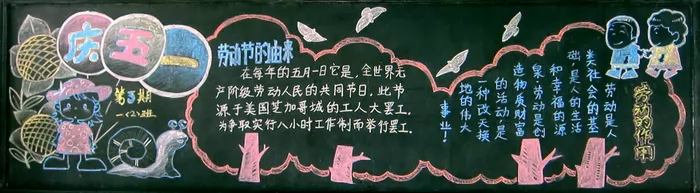 庆五一
第3期
一(2)班
劳动节的由来
在每年的五月一日它是,全世界无
产阶级劳动人民的共同节日。此节
源于美国芝加哥城的工人大罢工。
为争取实行八小时工作制而举行罢工。
劳动的作用
劳动是人
类社会的基
础是人的生活
和幸福的源
泉劳动是创
造物质财富
的活动是
一种改天换
地的伟大
事业!